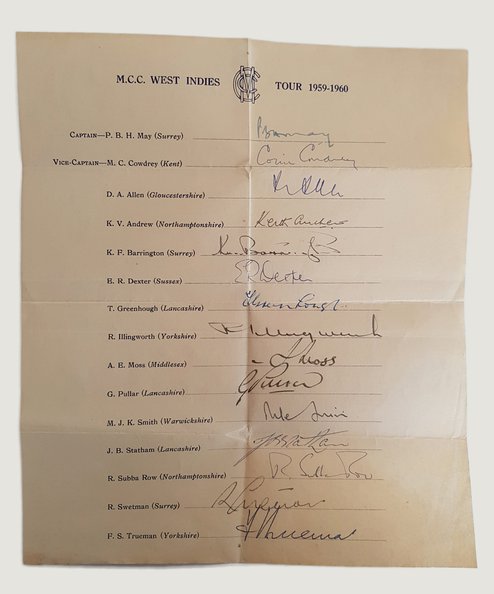 M.C.C. WEST INDIES MCC TOUR 1959-1960
CAPTAIN—P. B. H. MAY (Surrey) PBHMay
VICE-CAPTAIN—M. C. COWDREY (Kent) Colin Cowdrey
D. A. ALLEN (Gloucestershire)
K. V. ANDREW (Northamptonshire) Keith Andrew
K. F. BARRINGTON (Surrey) Ken Barrington
E. R. DEXTER (Sussex) ER Dexter
T. GREENHOUGH (Lancashire)
R. ILLINGWORTH (Yorkshire) R Illingworth
A. E. MOSS (Middlesex) Moss
G. PULLAR (Lancashire) G Pullar
M. J. K. SMITH (Warwickshire) Mike Smith
J. B. STATHAM (Lancashire) JB Statham
R. SUBBA ROW (Northamptonshire) R. Subba Row
R. SWETMAN (Surrey) R Swetman
F. S. TRUEMAN (Yorkshire) F Trueman